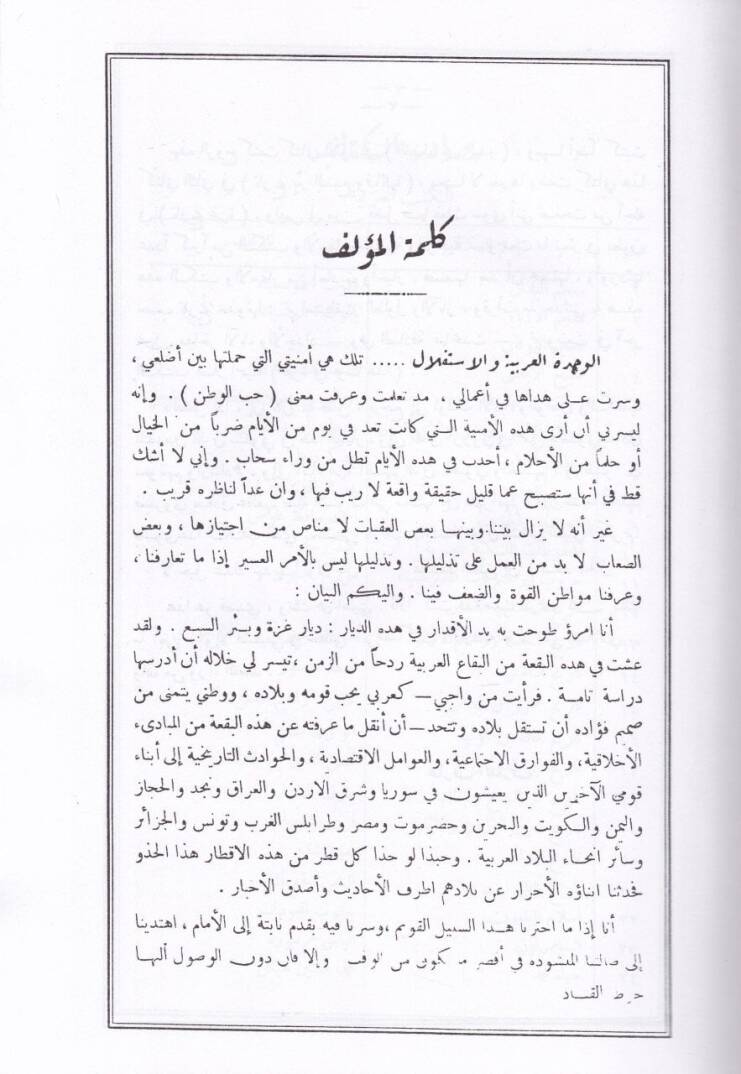 كلمة المؤلف
الوحدة العربية والاستقلال ..... تلك هي أمنيتي التي حملتها بين أضلعي ،
وسرت على هداها في أعمالي ، مذ تعلمت وعرفت معنى ( حب الوطن ) . وإنه
ليسرني أن أرى هذه الأمنية التي كانت تعد في يوم من الأيام ضرباً من الخيال
أو حلماً من الأحلام ، أخذت في هذه الأيام تطل من وراء سحاب . وإني لا أشك
قط في أنها ستصبح عما قليل حقيقة واقعة لا ريب فيها ، وان غداً لناظره قريب .
غير أنه لا يزال بيننا وبينها بعض العقبات لا مناص من اجتيازها ، وبعض
الصعاب لا بد من العمل على تذليلها . وتذليلها ليس بالأمر العسير إذا ما تعارفنا ،
وعرفنا مواطن القوة والضعف فينا . واليكم البيان :
أنا امرؤ طوحت به يد الأقدار في هذه الديار : ديار غزة وبئر السبع . ولقد
عشت في هذه البقعة من البقاع العربية ردحاً من الزمن ، تيسر لي خلاله أن أدرسها
دراسة تامة . فرأيت من واجبي — كعربي يحب قومه وبلاده ، ووطني يتمنى من
صميم فؤاده أن تستقل بلاده وتتحد — أن أنقل ما عرفته عن هذه البقعة من المبادىء
الأخلاقية ، والفوارق الاجتماعية ، والعوامل الاقتصادية ، والحوادث التاريخية إلى أبناء
قومي الآخرين الذين يعيشون في سوريا وشرق الاردن والعراق ونجد والحجاز
واليمن والكويت والبحرين وحضرموت ومصر وطرابلس الغرب وتونس والجزائر
وسائر انحاء البلاد العربية . وحبذا لو حذا كل قطر من هذه الاقطار هذا الحذو
فحدثنا ابناؤه الأحرار عن بلادهم اطرف الأحاديث وأصدق الأخبار .
أنا إذا ما اخترنا هذا السبيل القويم ، وسرنا فيه بقدم ثابتة إلى الأمام ، اهتدينا
إلى ضالتنا المنشودة في أقصر ما يكون من الوقت وإلا فان دون الوصول اليها
خرط القتاد